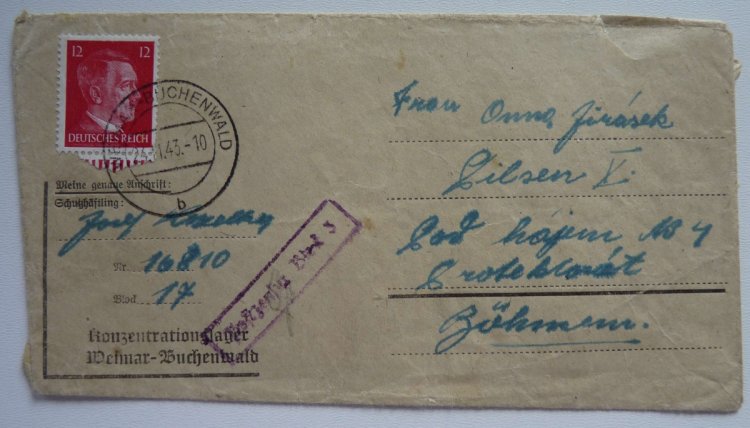 12 12
DEUTSCHES REICH
BUCHENWALD
.43.-10
b
Meine genaue Anschrift:
Schutzhäftling:
Josef
Nr. 16810
Block 17
Konzentrationslager
Weimar-Buchenwald
Block 3
Frau Anna Jirásek
Pilsen X.
Pod hájem No 4
Protektorát
Böhmen.